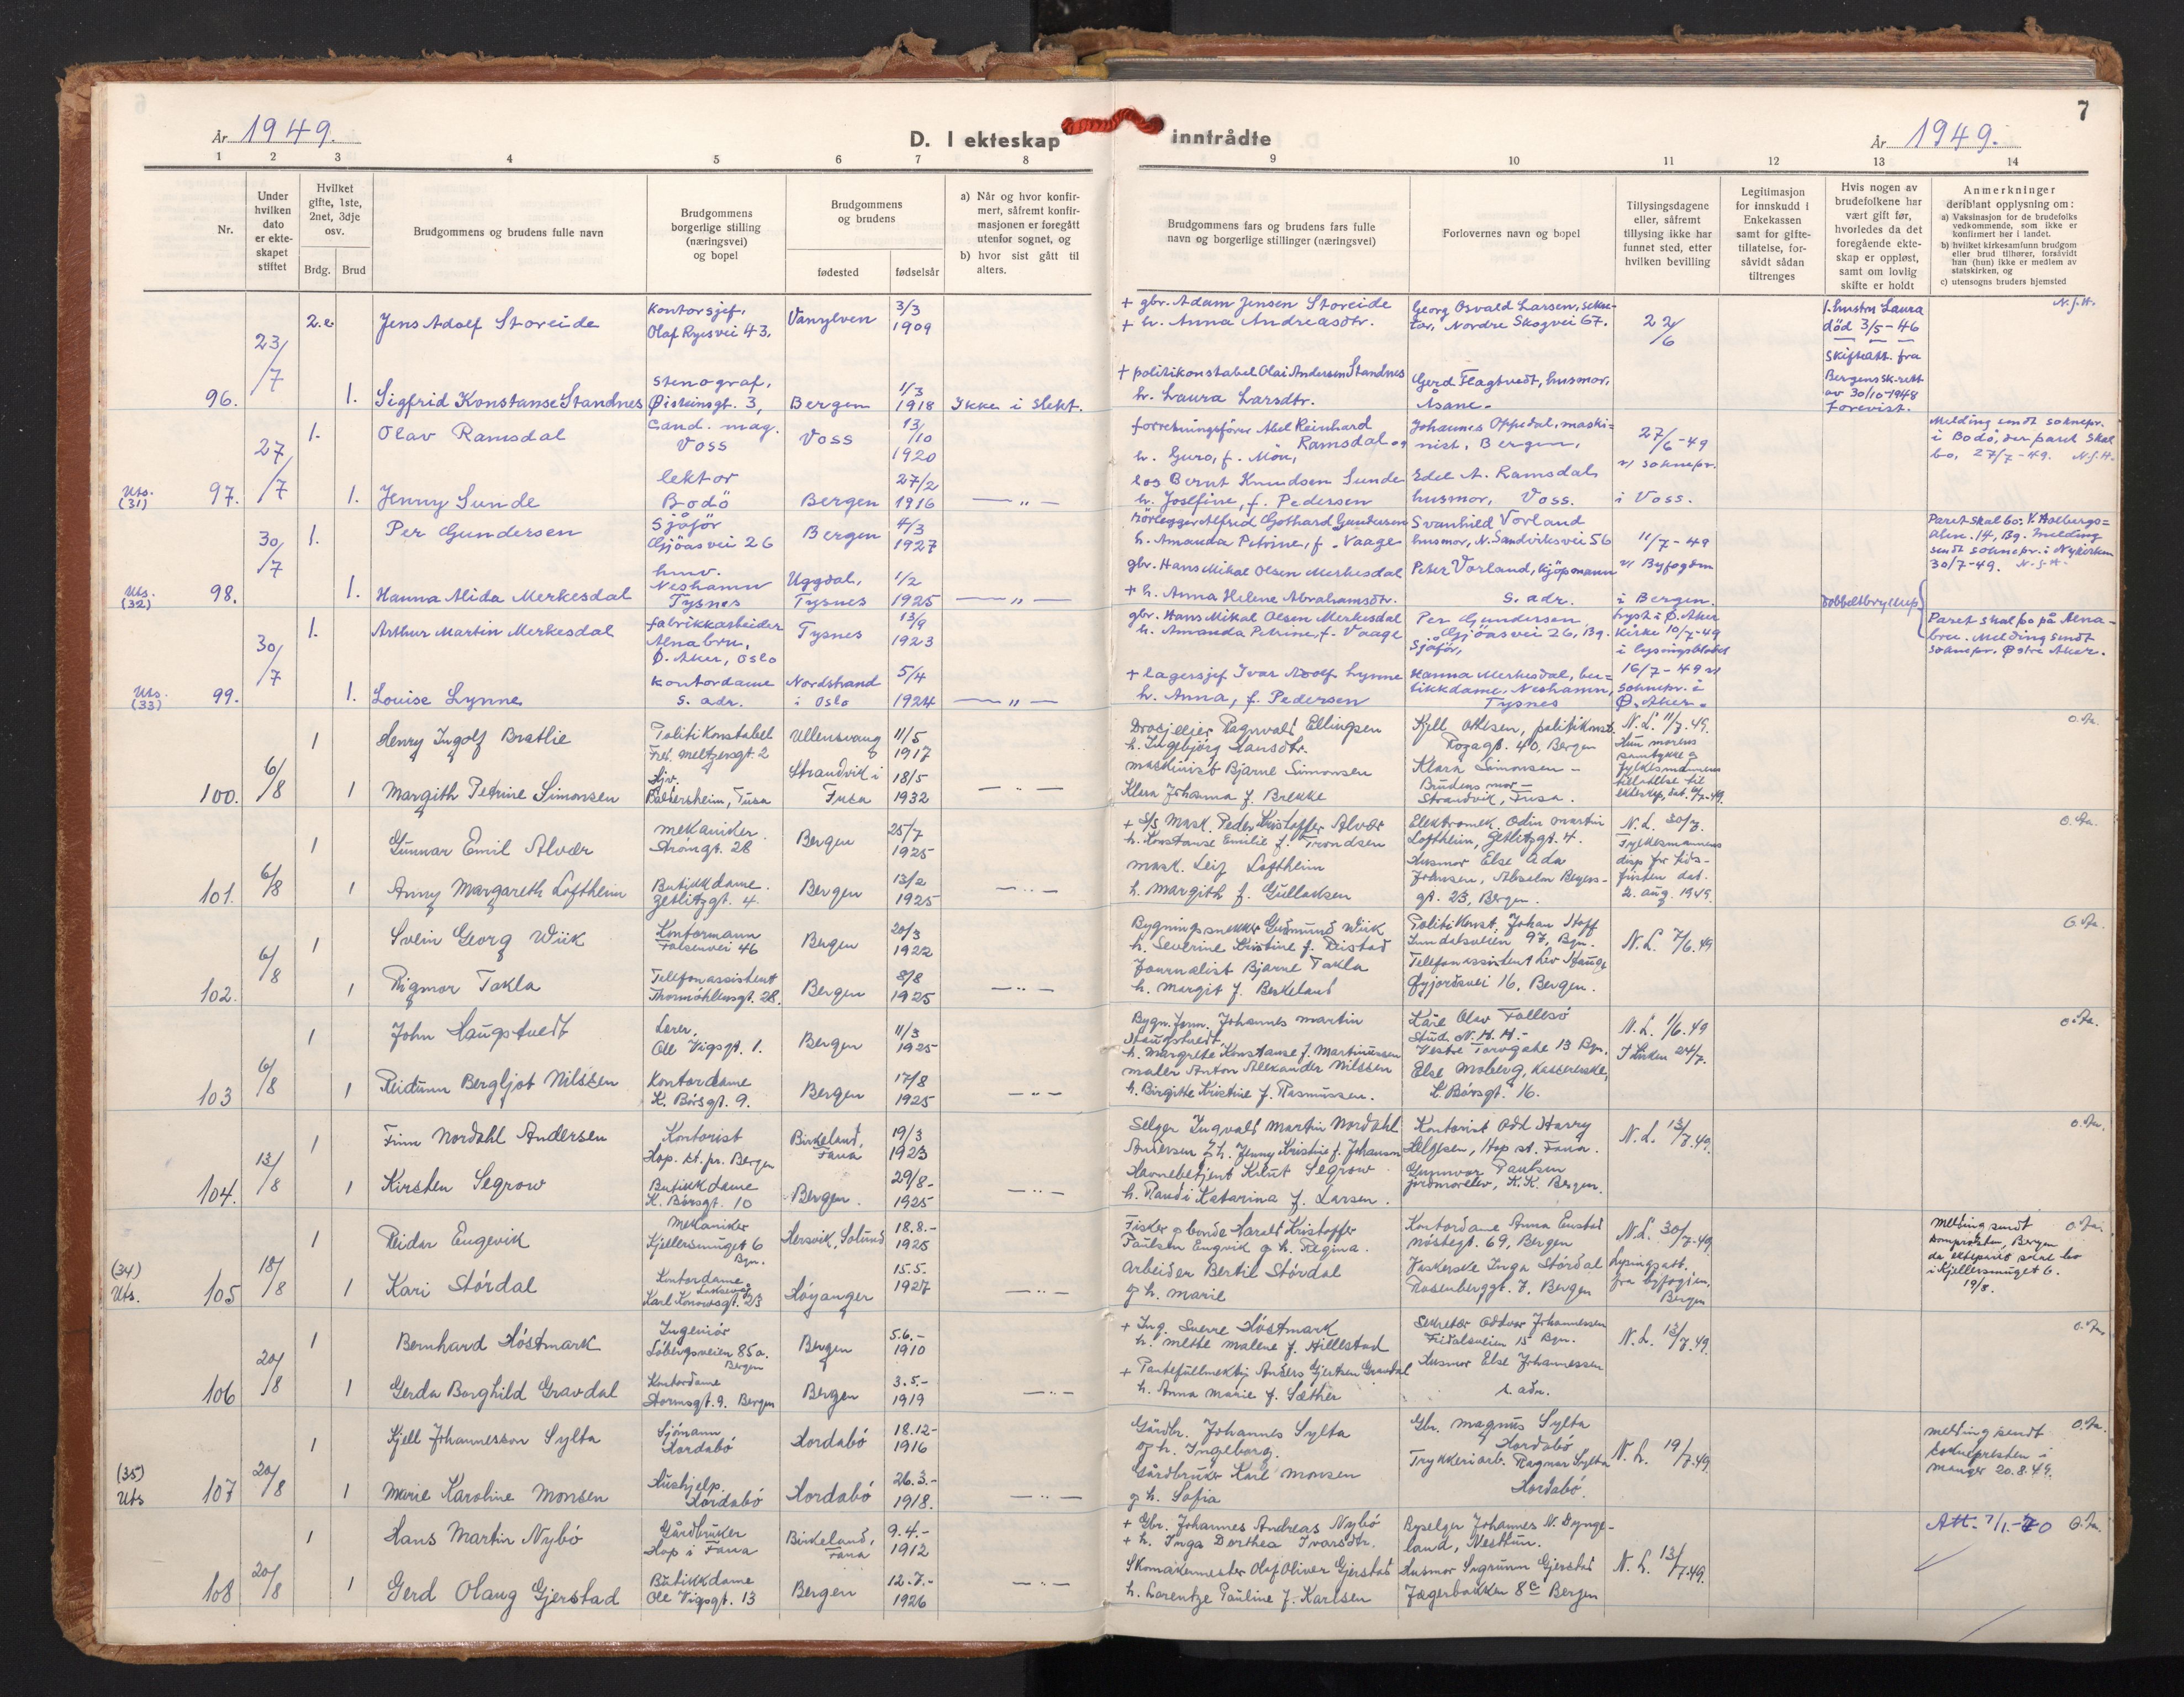 År 1949.
D. I ekteskap
inntrådte
7
År 1949.
1 2 3 4 5 6 7 8 9 10 11 12 13 14
Nr.
Under hvilken dato er ekte-skapet stiftet
Hvilket gifte, 1ste, 2net, 3dje osv.
Brdg. Brud
Brudgommens og brudens fulle navn
Brudgommens borgerlige stilling (næringsvei) og bopel
Brudgommens og brudens
fødested fødselsår
a) Når og hvor konfir-
mert, såfremt konfir-
masjonen er foregått
utenfor sognet, og
b) hvor sist gått til
alters.
Brudgommens fars og brudens fars fulle
navn og borgerlige stillinger (næringsvei)
Forlovernes navn og bopel
Tillysingsdagene
eller, såfremt
tillysing ikke har
funnet sted, etter
hvilken bevilling
Legitimasjon
for innskudd i
Enkekassen
samt for gifte-
tillatelse, for-
såvidt sådan
tiltrenges
Hvis nogen av
brudefolkene har
vært gift før,
hvorledes da det
foregående ekte-
skap er oppløst,
samt om lovlig
skifte er holdt
Anmerkninger
deriblant opplysning om:
a) Vaksinasjon for de brudefolks
vedkommende, som ikke er
konfirmert her i landet.
b) hvilket kirkesamfunn brudgom
eller brud tilhører, forsåvidt
han (hun) ikke er medlem av
statskirken, og
c) utensogns bruders hjemsted
96. 23/7
2. Jens Adolf Storeide
Kontorsjef,
Olaf Ryesvei 43.
Vanylven 3/3 1909
+ gbr. Adam Jensen Storeide
+ h. Anna Andreasdtr.
Georg Osvald Larsen, sekre-
tær, Nordre Skogvei 67.
22/6
1. hustru Laura
död 3/5-46
Skifteatt. fra
Bergens sk.rett
av 30/10-1948
forevist.
N.J.H.
1. Sigfrid Konstanse Standnes
Stenograf,
Øisteinsgt. 3,
Bergen 1/3 1918
Ikke i slekt.
+ politikonstabel Olai Andersen Standnes
h. Laura Larsdtr.
Gerd Flagtvedt, husmor,
Åsane.
Uts. (31) 97. 27/7
1. Olav Ramsdal
Cand. mag.
Voss
Voss 13/10 1920
forretningsfører Abel Reinhard
Ramsdal og
h. Guro, f. Mön,
Johannes Oppedal, maski-
nist, Bergen,
27/6-49
v/ soknepr.
i Voss.
Melding sendt soknepr.
i Bodö, der paret skal
bo, 27/7-49. N.J.H.
1. Jenny Sunde
lektor
Bodö
Bergen 27/2 1916
— „ —
los Bernt Knudsen Sunde
h. Josefine, f. Pedersen
Edel A. Ramsdal
husmor, Voss.
Uts. (32) 98. 30/7
1. Per Gundersen
Sjåför
Gjöasvei 26
Bergen 4/3 1927
Rörlegger Alfred Gothard Gundersen
h. Amanda Petrine, f. Vaage
Svanhild Vorland
husmor, N. Sandviksvei 56
11/7-49
v/ Byfogden
i Bergen.
Paret skal bo: V. Holbergs=
alm. 14, Bg. Melding
sendt soknepr. i Nykirken
30/7-49. N.J.H.
1. Hanna Alida Merkesdal
hmv.
Neshamn
Tysnes
Uggdal,
Tysnes 1/2 1925
— „ —
gbr. Hans Mikal Olsen Merkesdal
+ h. Anna Helene Abrahamsdtr.
Peter Vorland, kjöpmann
s. adr.
Dobbeltbryllup
Uts. (33) 99. 30/7
1. Arthur Martin Merkesdal
fabrikkarbeider
Alnabru,
Ø. Aker, Oslo
Tysnes 13/9 1923
gbr. Hans Mikal Olsen Merkesdal
h. Amanda Petrine, f. Vaage
Per Gundersen
Gjöasvei 26, Bg.
Sjåför,
lyst i Ø. Aker
Kirke 10/7-49
i lysningsbladet
16/7-49 v/
soknepr. i
Ø. Aker.
Paret skal bo på Alna-
bru. Melding sendt
soknepr. Østre Aker.
1. Louise Lynne
Kontordame
s. adr.
Nordstrand
i Oslo 5/4 1924
— „ —
+ lagersjef Ivar Adolf Lynne
h. Anna, f. Pedersen
Hanna Merkesdal, bu-
tikkdame, Neshamn,
Tysnes
100. 6/8
1 Henry Ingolf Bratlie
Politikonstabel
Fr. Meltzersgt. 2
Ullensvang 11/5 1917
Drosjeeier Ragnvald Ellingsen
h. Ingebjörg Hansdtr.
Kjell Ottesen, politikonst.
Rozagt. 40, Bergen
N.L. 11/7.49.
Hun morens
samtykke og
fylkesmannens
tillatelse til
ekteskap, dat. 6/7-49.
O.Fa.
1 Margith Petrine Simonsen
Hjv.
Baldersheim, Fusa
Strandvik i
Fusa 18/5 1932
— „ —
maskinist Bjarne Simonsen
Klara Johanna f. Brekke
Klara Simonsen -
Brudens mor -
Strandvik, Fusa.
101. 6/8
1 Gunnar Emil Alvær
mekaniker.
Strömgt. 28
Bergen 25/7 1925
+ S/S Mask. Peder Kristoffer Alvær
h. Konstanse Emilie f. Trondsen
Elektromek. Odin Martin
Loftheim, Zetlitzgt. 4.
N.L. 30/7.
Fylkesmannens
disp for tids-
fristen dat.
2. aug. 1949.
O.Fa.
1 Anny Margareth Loftheim
Butikkdame.
Zetlitzgt. 4.
Bergen 13/2 1925
— „ —
mask. Leif Loftheim
h. Margith f. Gullaksen
Husmor Else Ada
Johnsen, Absalon Beyers-
gt. 23, Bergen.
102. 6/8
1 Svein Georg Wiik
Kontormann
Falsensvei 46
Bergen 20/3 1922
Bygningssnekker Gudmund Wiik
h. Severine Kristine f. Reistad
Politikonst. Johan Hoff
Lundalsveien 97, Bgn.
N.L. 7/6.49
O.Fa.
1 Rigmor Takla
Telefonassistent
Thormöhlensgt. 28.
Bergen 8/8 1925
— „ —
Journalist Bjarne Takla
h. Margit f. Berkeland
Telefonassistent Liv Hauge
Øyjordsvei 16, Bergen.
103 6/8
1 John Haugstvedt
Lærer,
Ole Vigsgt. 1.
Bergen 11/3 1925
Bygn.form. Johannes Martin
Haugstvedt,
h. Margrete Konstanse f. Martinussen
Kåre Olav Follesö
Stud. N.H.H.
Vestre Torvgate 13 Bgn.
N.L. 1/6.49
O.Fa.
1 Reidunn Bergljot Nilssen
Kontordame
K. Börsgt. 9.
Bergen 17/8 1925
— „ —
maler Anton Alexander Nilssen
h. Birgitte Kristine f. Rasmussen.
Else Moberg, Kassererske,
K. Börsgt. 16.
104. 13/8
1 Finn Nordahl Andersen
Kontorist
Hop. st. pr. Bergen
Birkeland,
Fana 19/3 1923
Selger Ingvald Martin Nordahl
Andersen & h. Jenny Kristine f. Johansen
Kontorist Odd Harry
Helgesen, Hop st. Fana.
N.L. 13/7.49.
O.Fa.
1 Kirsten Segrow
Butikkdame
K. Börsgt. 10
Bergen. 29/8- 1925
— „ —
Havnebetjent Knut Segrow
h. Randi Katarina f. Larsen.
Gunnvor Paulsen
jordmorelev, K.K. Bergen.
(34) Uts. 105 18/8
1 Reidar Eugevik
Mekaniker
Kjellersmuget 6
Bgn.
Hersvik, Solund 18.8.- 1925
Fisker og bonde Harald Kristoffer
Paulsen Engvik og h. Regina.
Kontordame Anna Eustad
Nöstegt. 69, Bergen
N.L. 30/7-49.
Lysingsatt.
fra byfogden,
Bergen
Melding sendt
Domprosten, Bergen
da ekteparet skal bo
i Kjellersmuget 6.
19/8.
O.Fa.
1 Kari Stördal
Kontordame,
Laksevåg
Karl Konowsgt. 23
Höyanger 15.5. 1927
— „ —
Arbeider Bertil Stördal
og h. Marie
Vaskerske Inga Stördal
Rosenberggt. 7, Bergen
106 20/8
1 Bernhard Höstmark
Ingeniör
Löbergsveien 85a.
Bergen
Bergen 5.6.- 1910
+ Ing. Sverre Höstmark
h. Mette Malene f. Hillestad
Sekretær Oddvar Johannessen
Fridalsveien 15 Bgn.
N.L. 13/7.49.
O.Fa.
1 Gerda Borghild Gravdal
Kontordame
Stormsgt. 9. Bergen
Bergen 3.5.- 1919
— „ —
+ Pantefullmektig Anders Gjertsen Gravdal
h. Anna Marie f. Sæther
Husmor Else Johannessen
s. adr.
(35) Uts 107 20/8
1 Kjell Johannesson Sylta
Sjömann
Hordabö
Hordabö 18.12- 1916
Gårdbr. Johannes Sylta
og h. Ingeborg.
Gbr. Magnus Sylta
Hordabö
N.L. 19/7.49.
Melding sendt
sokneprestен i
Manger 20.8.49.
O.Fa.
1 Marie Karoline Monsen
Hushjelp.
Hordabö
Hordabö 26.3.- 1918.
— „ —
Gårdbruker Karl Monsen
og h. Sofia
Trykkeriarb. Ragnar Sylta
Hordabö.
108 20/8
1 Hans Martin Nybö
Gårdbruker
Hop i Fana
Birkeland,
Fana 9.4.- 1912
+ Gbr. Johannes Andreas Nybö
+ h. Inga Dorthea Ivarsdtr.
Byselger Johannes N. Dynge-
land, Nesttun.
N.L. 13/7.49.
Att. 7/1-70 O.Fa.
1 Gerd Olaug Gjerstad
Butikkdame
Ole Vigsgt. 13
Bergen 12.7.- 1926
— „ —
Skomakermester Olaf Oliver Gjerstad
h. Lorentze Pauline f. Karlsen
Husmor Sigrunn Gjerstad
Jægerbakken 8c Bergen